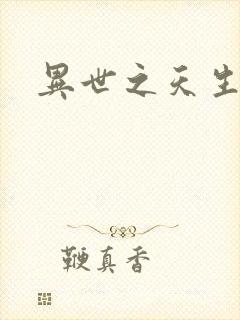 異世之天生
鞭真香